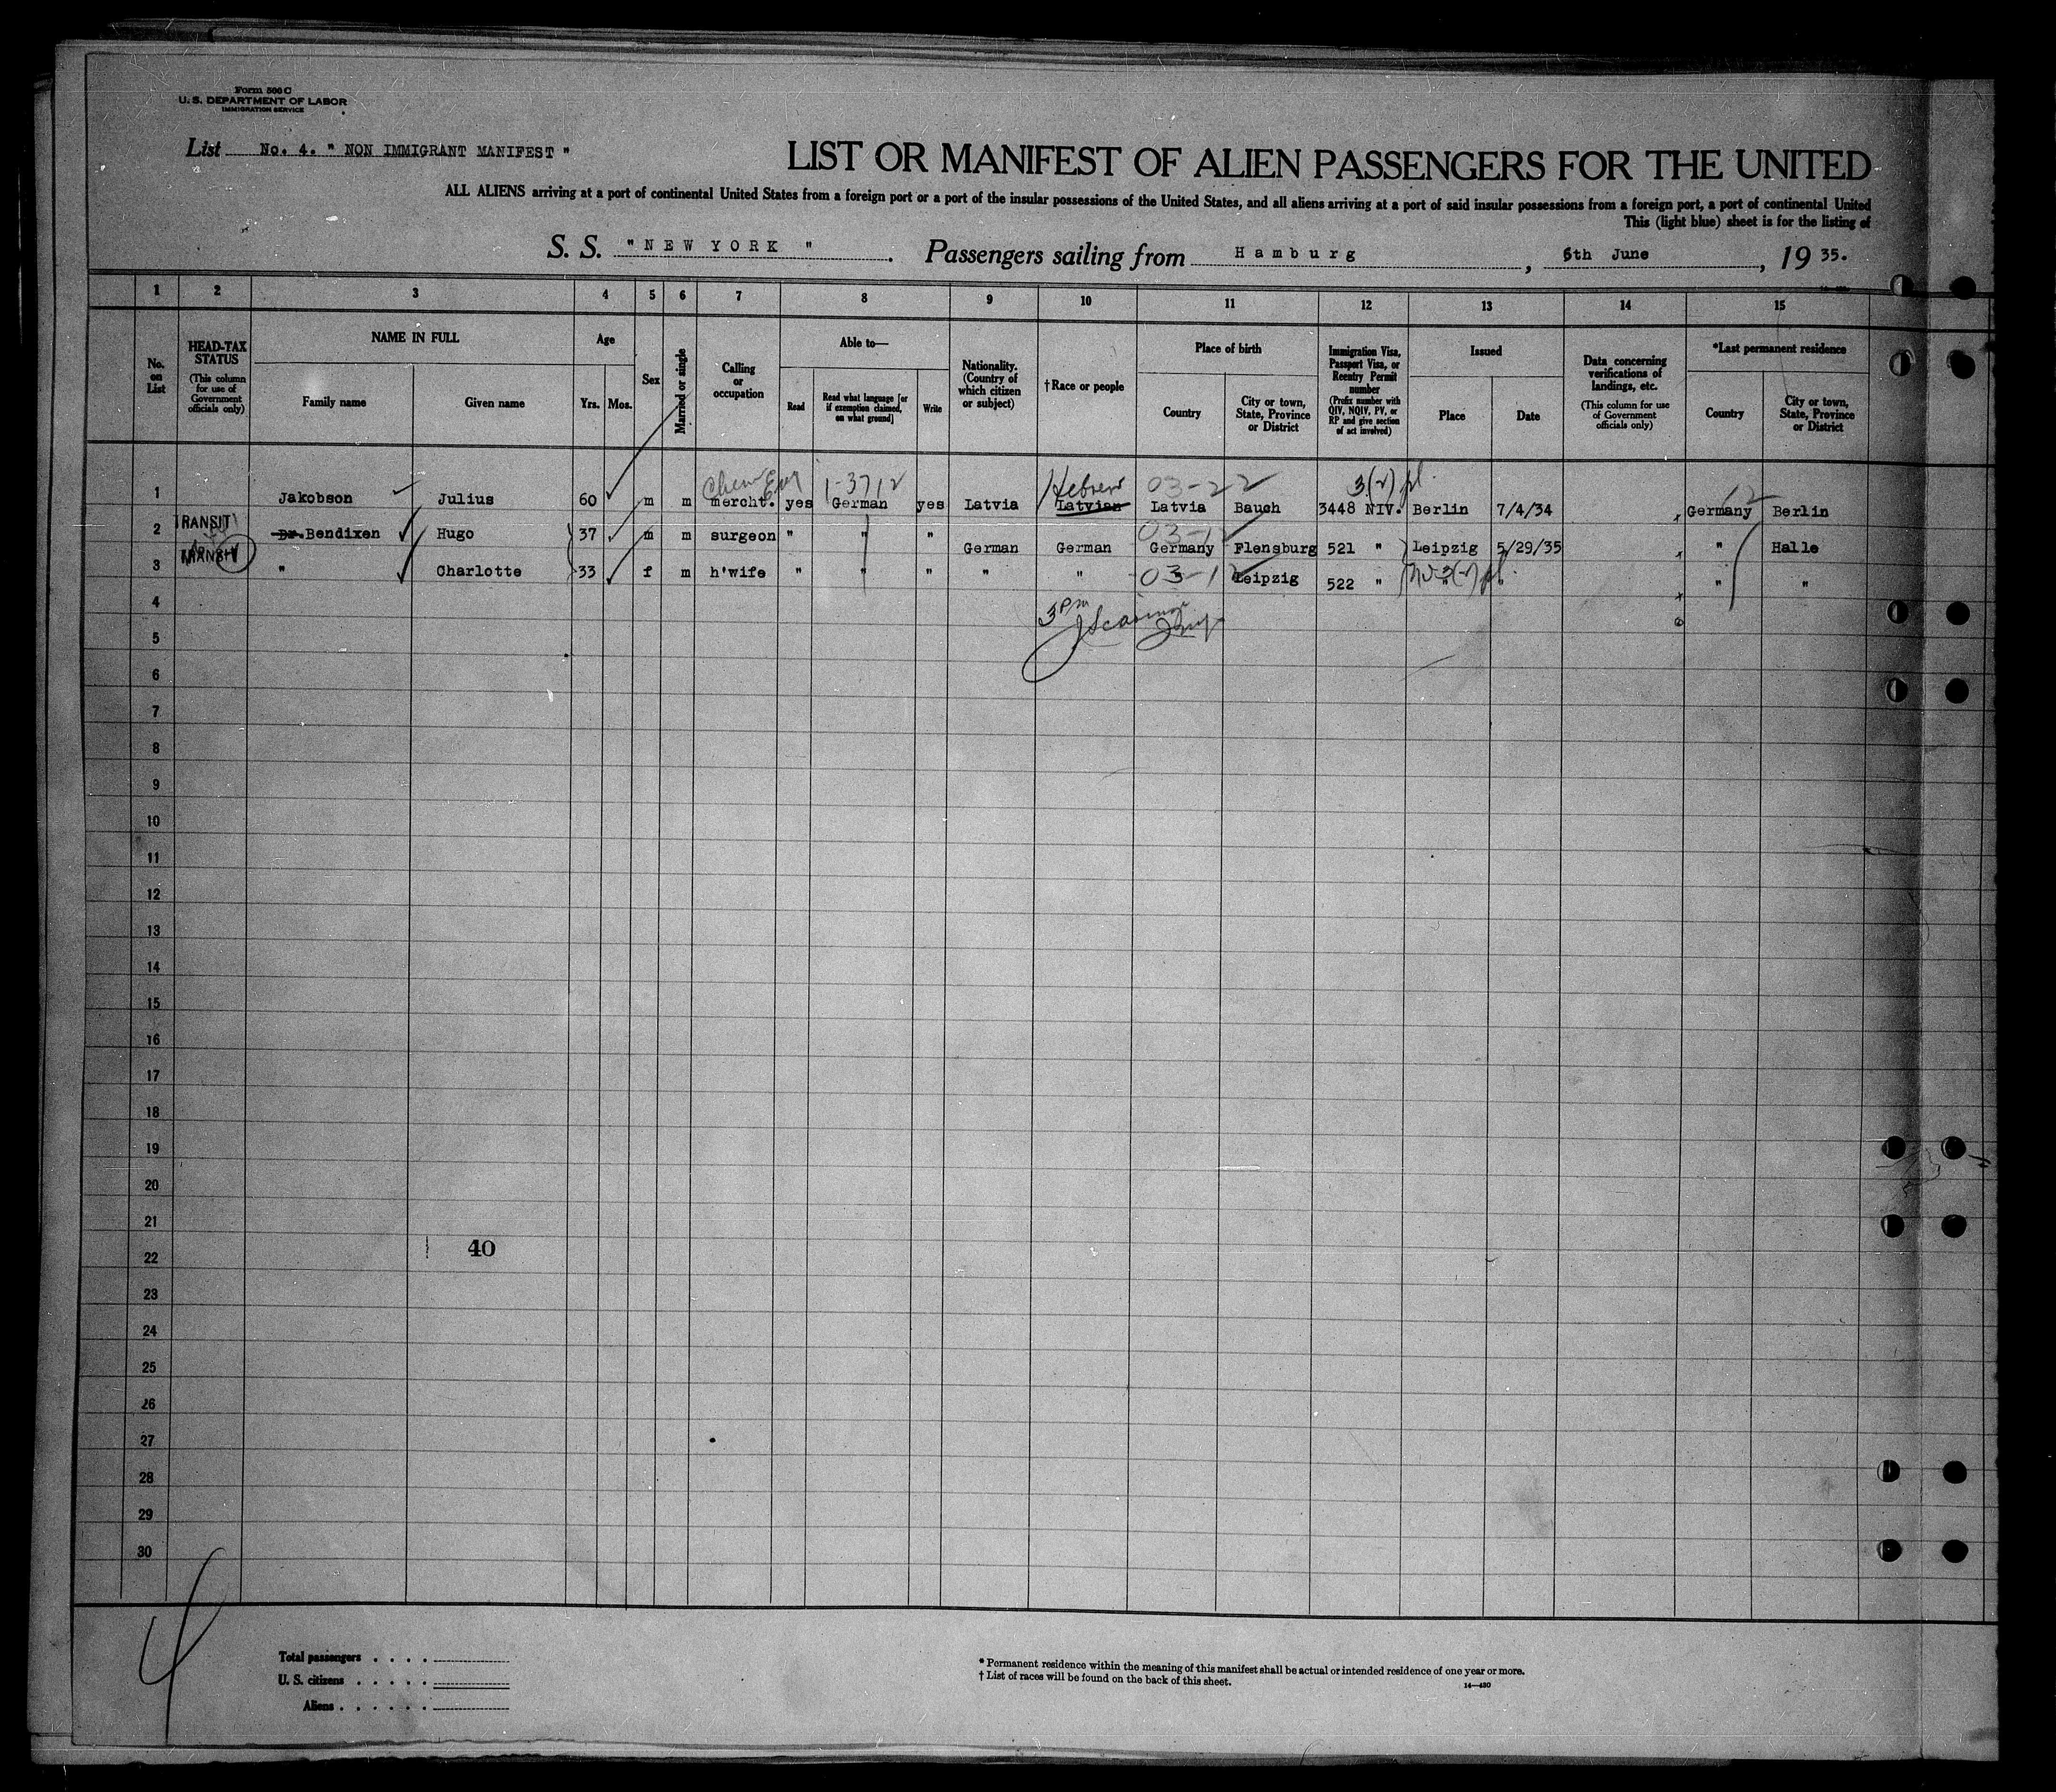 Form 500 C
U. S. DEPARTMENT OF LABOR
IMMIGRATION SERVICE
List No. 4. " NON IMMIGRANT MANIFEST "
LIST OR MANIFEST OF ALIEN PASSENGERS FOR THE UNITED
ALL ALIENS arriving at a port of continental United States from a foreign port or a port of the insular possessions of the United States, and all aliens arriving at a port of said insular possessions from a foreign port, a port of continental United
This (light blue) sheet is for the listing of
S. S. " NEW YORK ". Passengers sailing from Hamburg, 6th June, 19 35.
1 2 3 4 5 6 7 8 9 10 11 12 13 14 15
No. on List
HEAD-TAX STATUS (This column for use of Government officials only)
NAME IN FULL
Family name
Given name
Age
Yrs. Mos.
Sex
Married or single
Calling or occupation
Able to—
Read
Read what language [or if exemption claimed, on what ground]
Write
Nationality. (Country of which citizen or subject)
†Race or people
Place of birth
Country
City or town, State, Province or District
Immigration Visa, Passport Visa, or Reentry Permit number (Prefix number with QIV, NQIV, PV, or RP and give section of act involved)
Issued
Place
Date
Data concerning verifications of landings, etc. (This column for use of Government officials only)
*Last permanent residence
Country
City or town, State, Province or District
Chem Eng 1-3712 Hebrew 03-22 3(2) pl. 62
1 Jakobson Julius 60 m m mercht. yes German yes Latvia Latvian Latvia Bauch 3448 NIV. Berlin 7/4/34 Germany Berlin
03-12
2 TRANSIT Dr. Bendixen Hugo 37 m m surgeon " " " German German Germany Flensburg 521 " Leipzig 5/29/35 " Halle
3 TRANSIT " Charlotte 33 f m h'wife " " " " " 03-12 Leipzig 522 " " "
4
3 Pm
5
6
7
8
9
10
11
12
13
14
15
16
17
18
19
20
21
22 40
23
24
25
26
27
28
29
30
4
Total passengers . . . .
U. S. citizens . . . . .
Aliens . . . . . .
* Permanent residence within the meaning of this manifest shall be actual or intended residence of one year or more.
† List of races will be found on the back of this sheet.
14—430